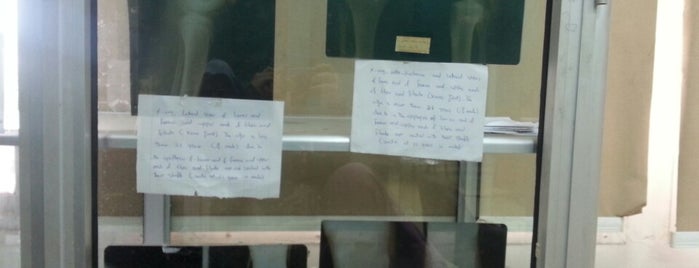 X-ray, Lateral view of lower end
of femur and upper end of tibia and
fibula (Knee Joint). The age is
more than 20 years (if male) due to
the epiphysis of lower end of femur and upper
end of tibia and fibula are united with
their shafts (unite at 20 years in males)
X-ray, antero-posterior and lateral views
of lower end of femur and upper end
of tibia and fibula (Knee Joint). The
age is more than 20 years (if male)
due to the epiphysis of lower end of
femur and upper end of tibia and
fibula are united with their shafts
(unite at 20 years in males)